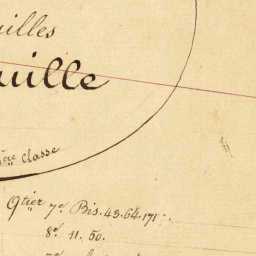 uilles
uille
ère classe
Qtier 7e Bis. 43. 64. 171
8e 11. 50.